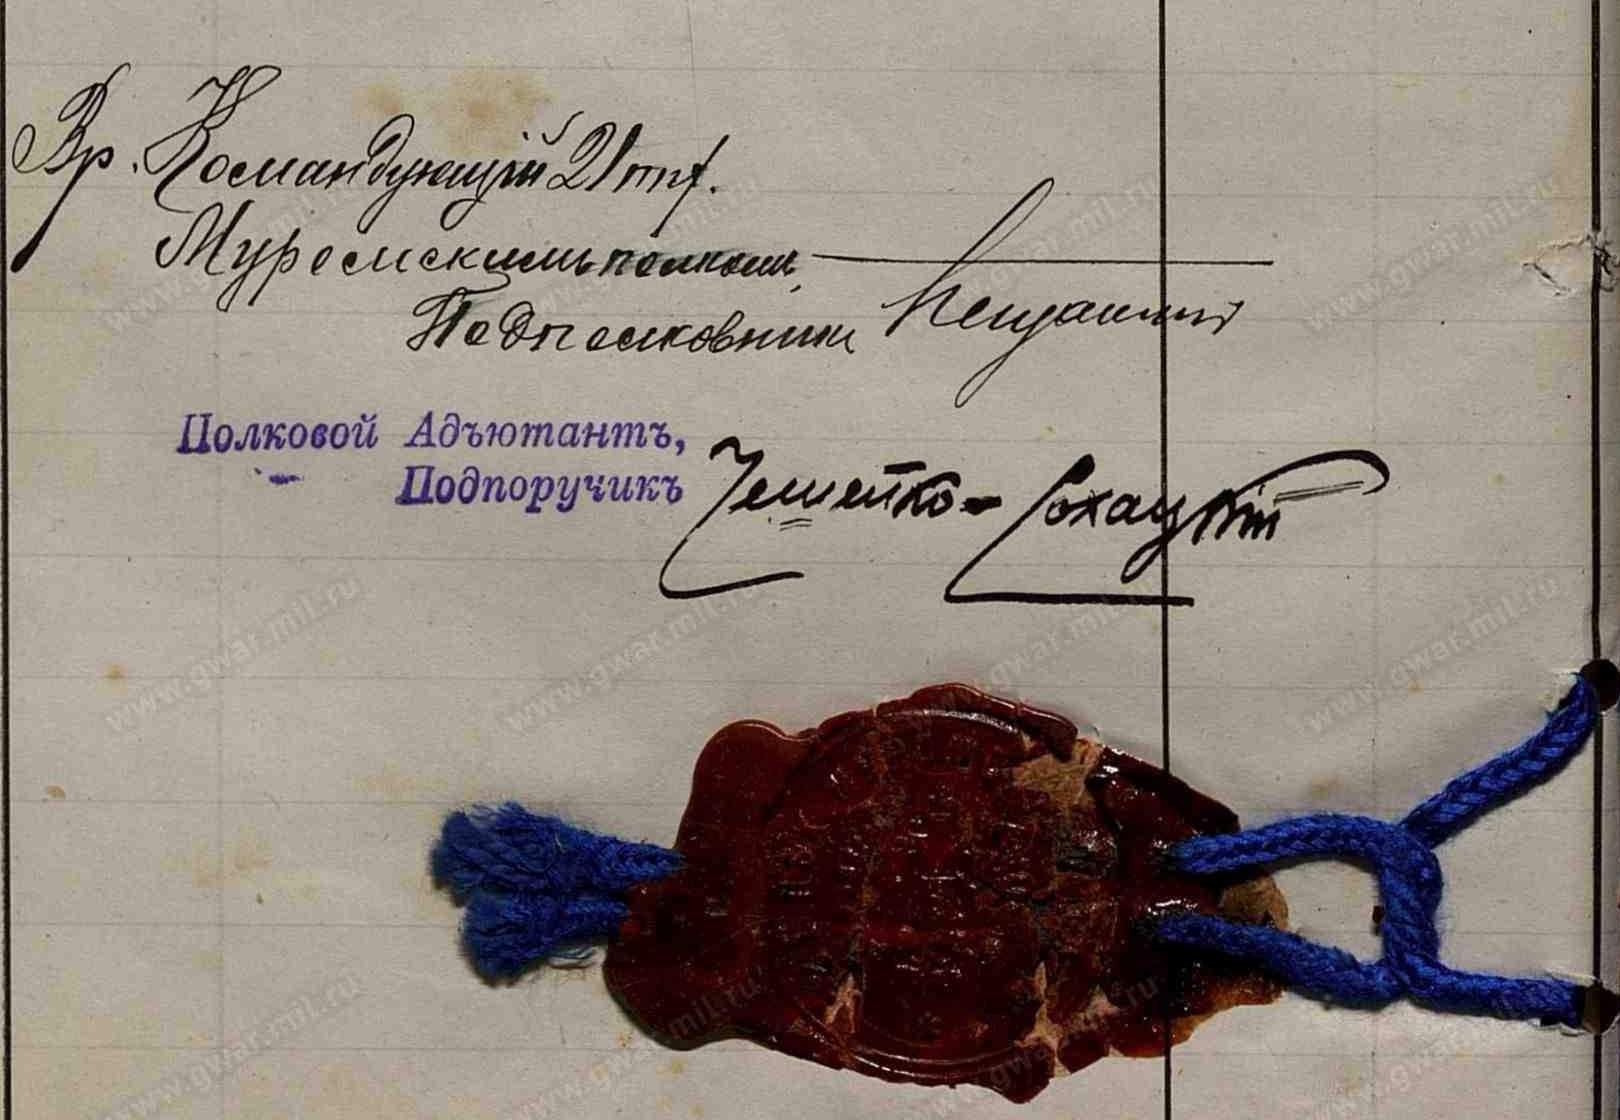 Вр. Командующій 21 пѣх.
Муромскимъ полкомъ,
Подполковникъ
Полковой Адъютантъ,
Подпоручикъ Чешейко-Сохацкій
www.gwar.mil.ru